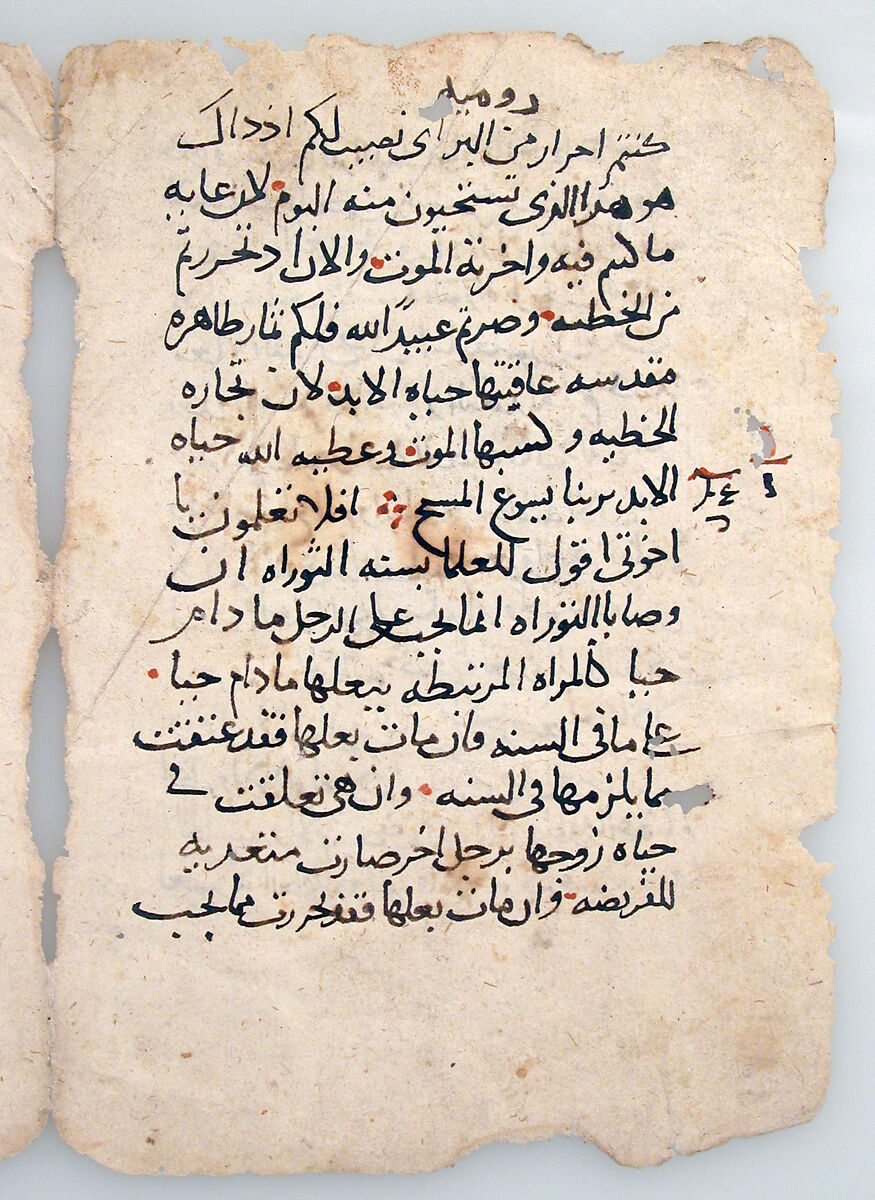 روميه
كنتم احرار من البر اى نصيب لكم اذ ذاك
هو هذا الذى تستحيون منه اليوم لان غايه
ما كنتم فيه واخرته الموت والان اذ تحررتم
من الخطيه وصرتم عبيدًا لله فلكم ثمار طاهره
مقدسه عاقبتها حياه الابد لان تجاره
الخطيه وكسبها الموت وعطيه الله حياه
الابد بربنا يسوع المسيح افلا تعلمون يا
اخوتى اقول للعلما بسنه التوراه ان
وصايا التوراه انما تجب على الرجل ما دام
حيا كالمراه المرتبطه ببعلها ما دام حيا
على ما فى السنه فان مات بعلها فقد عتقت
مما يلزمها فى السنه وان هى تعلقت فى
حياه زوجها برجل اخر صارت متعديه
للفريضه وان مات بعلها فقد تحررت مما يجب